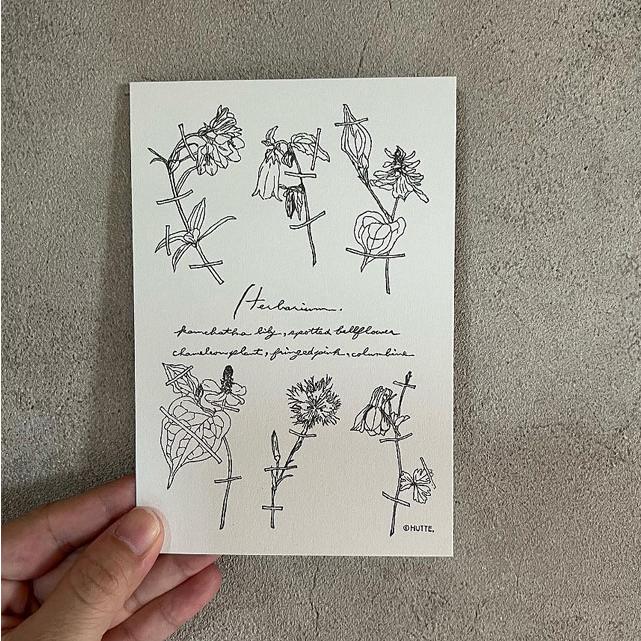 Herbarium.
kamchatka lily, spotted bellflower
chameleon plant, fringed pink, columbine
©HUTTE.